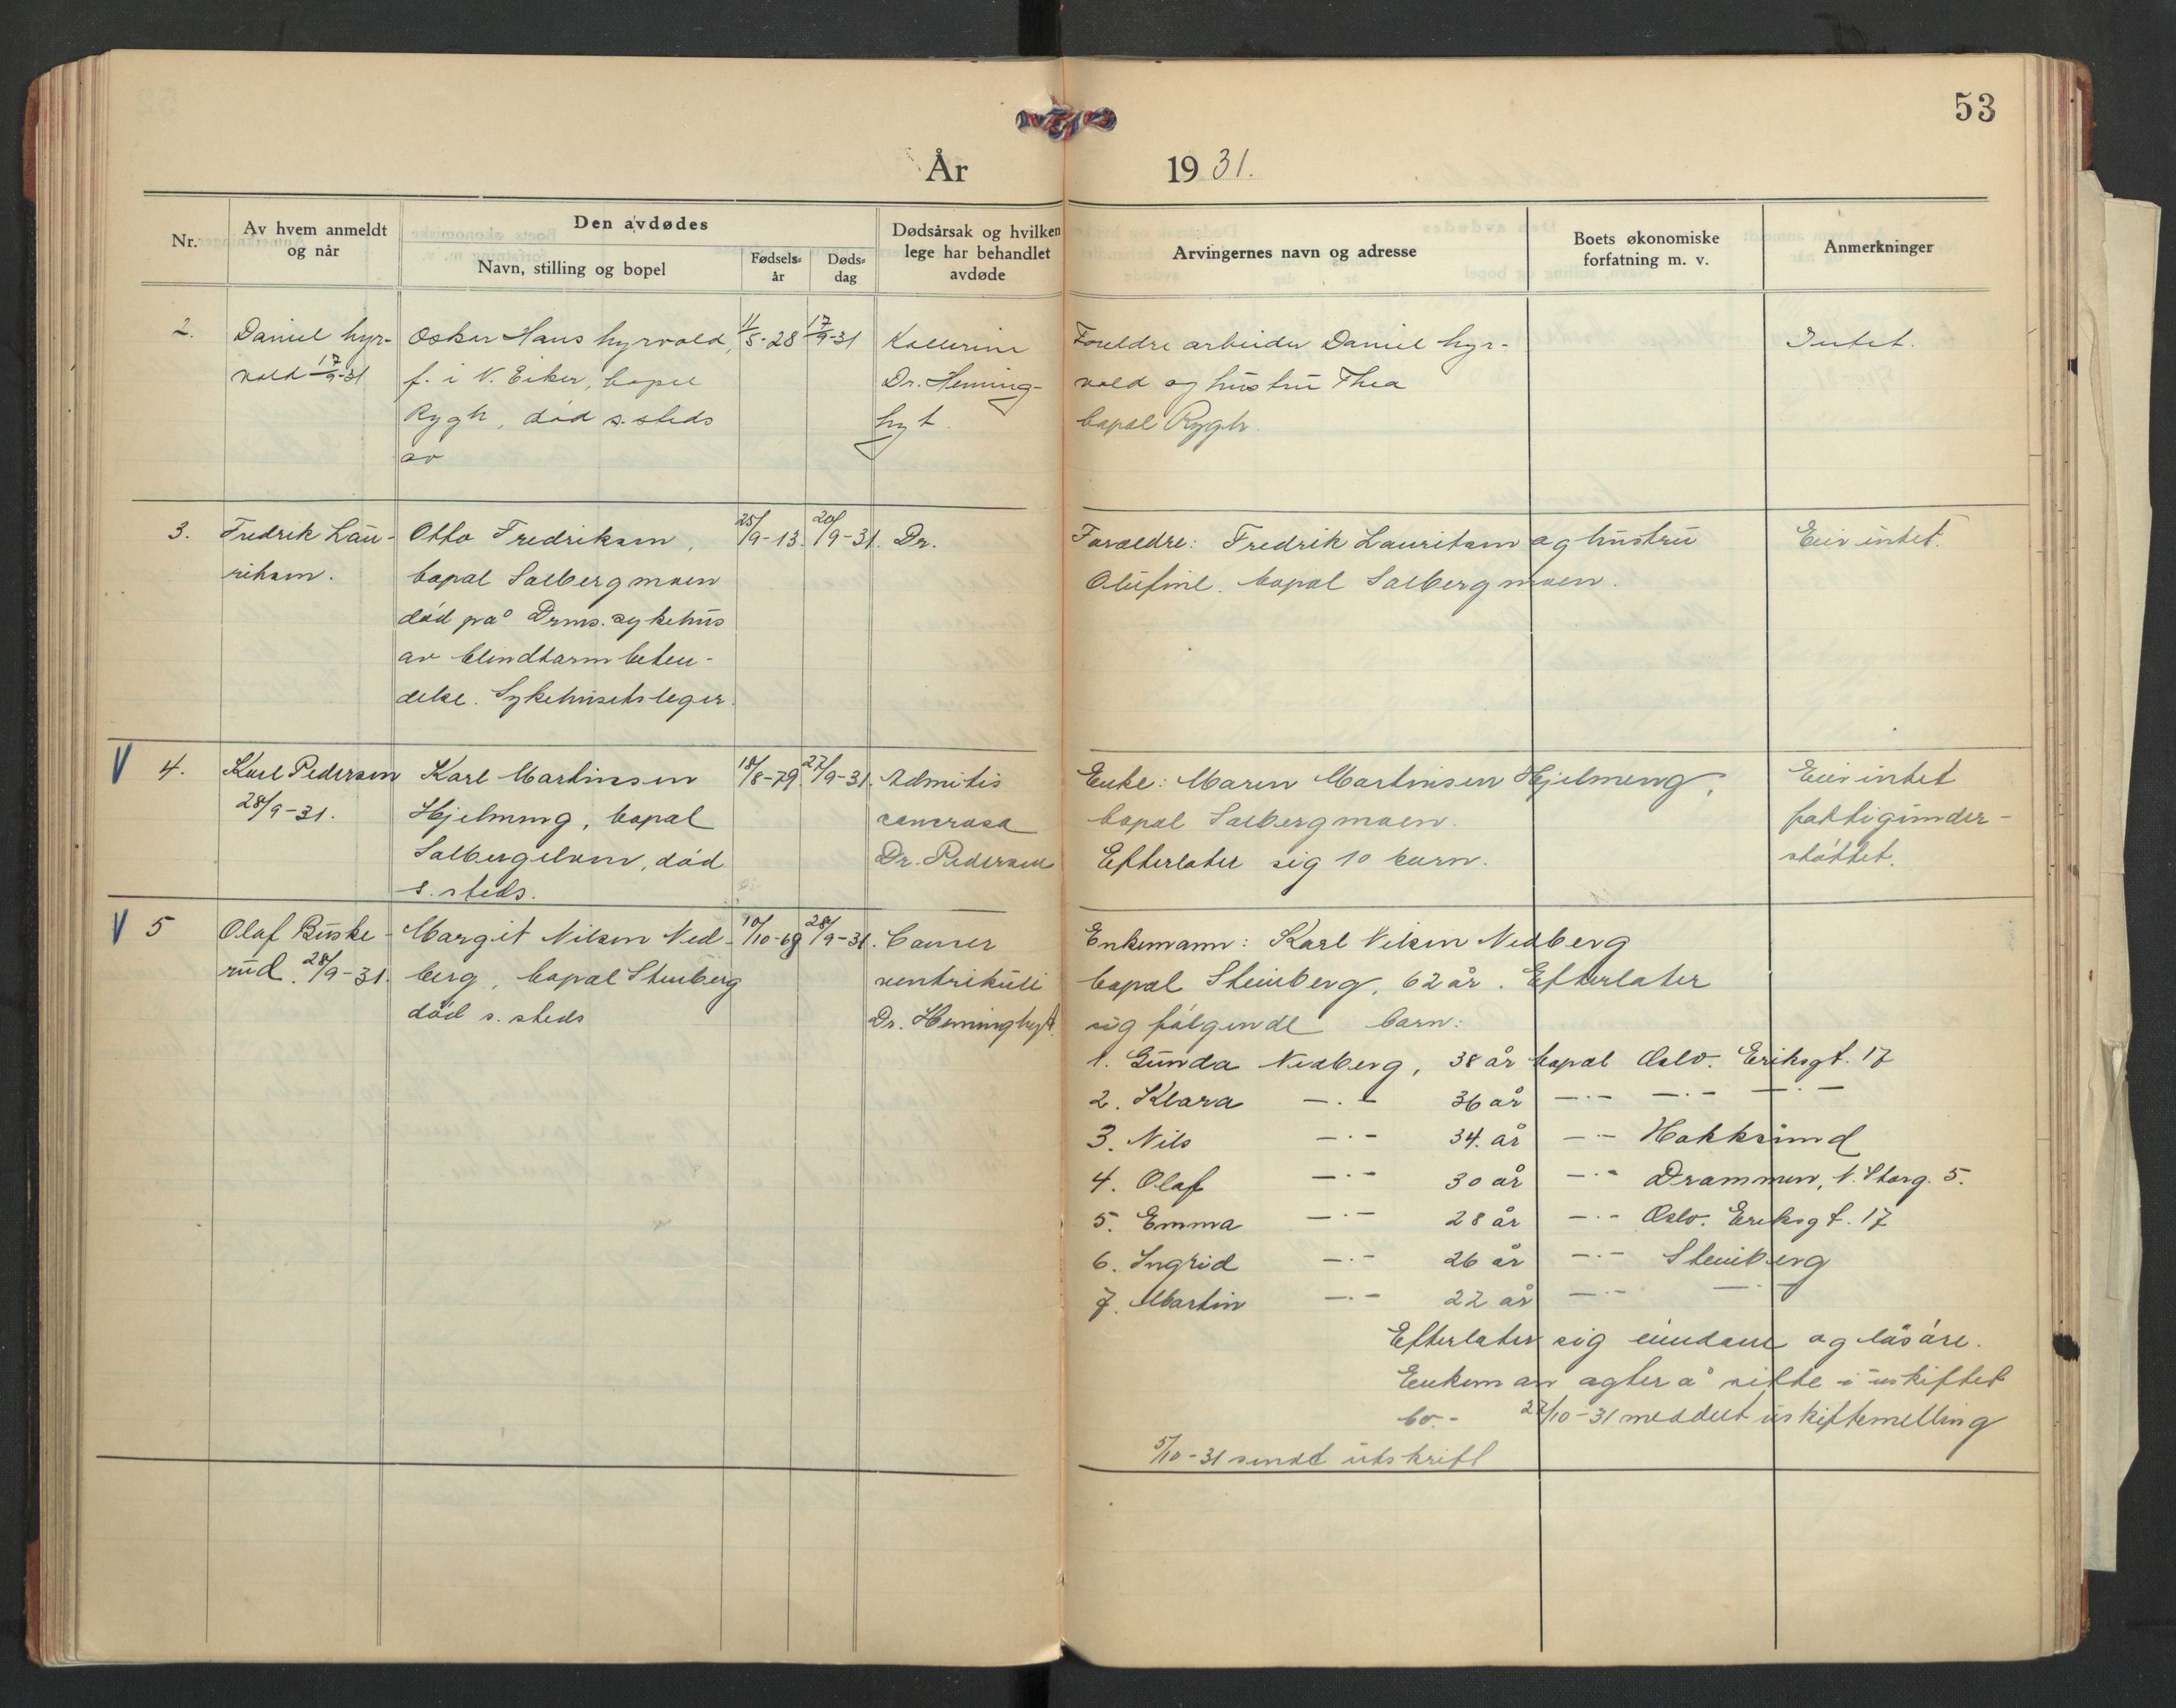 53
År 1931.
Nr.
Av hvem anmeldt
og når
Den avdødes
Navn, stilling og bopel
Fødsels-
år
Døds-
dag
Dødsårsak og hvilken
lege har behandlet
avdøde
Arvingernes navn og adresse
Boets økonomiske
forfatning m. v.
Anmerkninger
2.
Daniel hyr-
vold 17/9-31
Oskar Hans hyrvold,
f. i N. Eiker, bopel
Rygh, død s. steds
av
11/5-28
17/9-31
Dr. Heming-
hyt.
Foreldre arbeider Daniel hyr-
vold og hustru Thea
bopel Rygh.
Intet.
3.
Fredrik Lau-
ritsen.
Otto Fredriksen,
bopæl Solbergmoen
død på Drms. sykehus
av blindtarmbeten-
delse. Sykehusets leger.
25/9-13.
20/9-31.
Dr.
Foræeldre: Fredrik Lauritsen og hustru
Olufine. bopæl Solbergmoen.
Eier intet.
V 4.
Karl Pedersen
28/9-31.
Karl Martinsen
Hjelmeng, bopæl
Solbergelven, død
s. steds.
18/8-79.
27/9-31.
cancrosa
Dr. Pedersen
Enke: Maren Martinsen Hjelmeng,
bopæl Solbergmoen.
Efterlater sig 10 barn.
Eier intet
fattigunder-
støttet.
V 5
Olaf Buske-
rud. 28/9-31.
Margit Nilsen Ned-
berg, bopæl Stenberg
død s. steds
10/10-69
28/9-31.
Cancer
ventrikuli
Dr. Heminghyt.
Enkemann: Karl Nilsen Nedberg
bopæl Stenberg, 62 år. Efterlater
sig følgende barn:
1. Gunda Nedberg, 38 år bopæl Oslo. Eriksgt. 17
2. Klara —.— 36 år —.— —.— —.—
3. Nils —.— 34. år —.— Hokksund
4. Olaf —.— 30 år —.— Drammen, N. Storg. 5.
5. Emma —.— 28 år —.— Oslo. Eriksgt. 17
6. Ingrid —.— 26 år —.— Stenberg
7. Martin —.— 22 år —.— —.—
Efterlater sig eiendom og løsøre.
Enkeman agter å sitte i uskiftet
bo.- 27/10-31 meddelt uskiftemelling
5/10-31 sendt utskrift